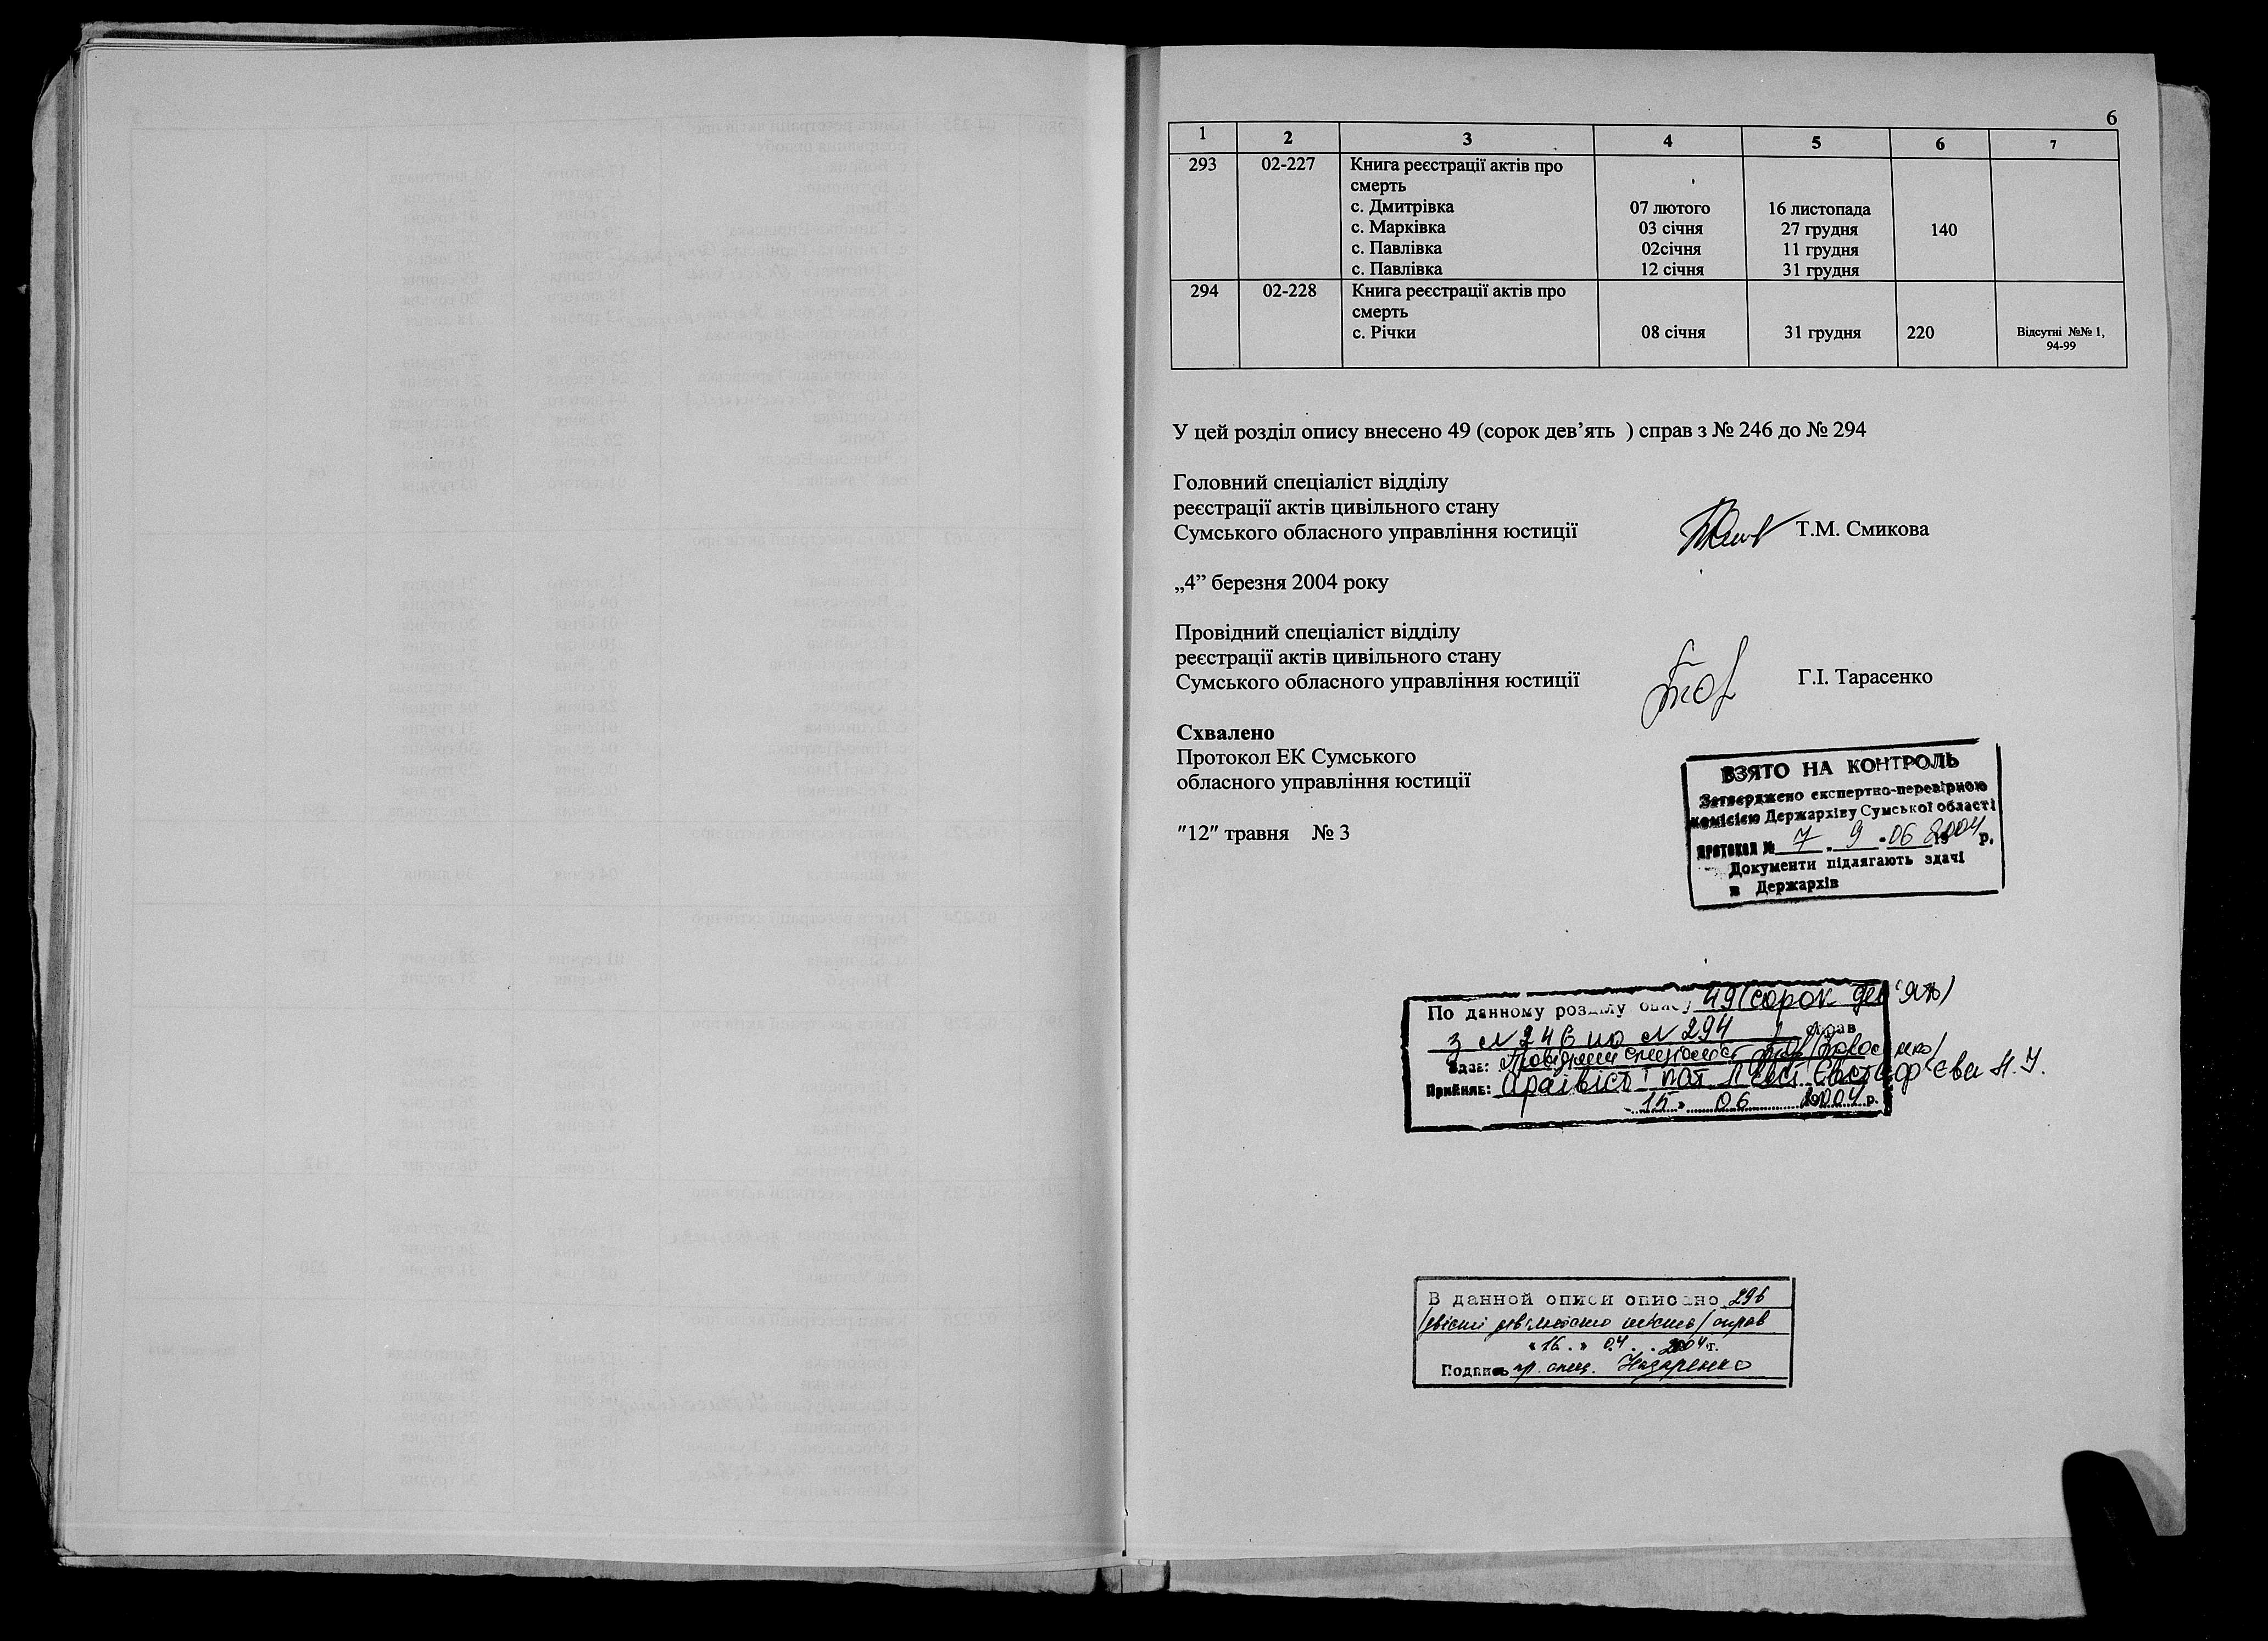 6
1 2 3 4 5 6 7
293 02-227 Книга реєстрації актів про
смерть
с. Дмитрівка 07 лютого 16 листопада
с. Марківка 03 січня 27 грудня 140
с. Павлівка 02січня 11 грудня
с. Павлівка 12 січня 31 грудня
294 02-228 Книга реєстрації актів про
смерть
с. Річки 08 січня 31 грудня 220 Відсутні №№ 1,
94-99
У цей розділ опису внесено 49 (сорок дев’ять ) справ з № 246 до № 294
Головний спеціаліст відділу
реєстрації актів цивільного стану
Сумського обласного управління юстиції Т.М. Смикова
„4” березня 2004 року
Провідний спеціаліст відділу
реєстрації актів цивільного стану
Сумського обласного управління юстиції Г.І. Тарасенко
Схвалено
Протокол ЕК Сумського
обласного управління юстиції
"12" травня № 3
ВЗЯТО НА КОНТРОЛЬ
Затверджено експертно-перевірною
комісією Держархіву Сумської області
протокол № 7 . 9 . 06 2004 р.
Документи підлягають здачі
в Держархів
По данному розділу опису 49 (сорок дев'ять)
з № 246 по № 294 справ
Здав: Провідний спеціаліст
Прийняв: Архівіст І кат Євстаф'єва Н.І.
15 06 2004 р.
В данной описи описано 296
/двісті дев'яносто шість/ справ
«16.» 04. 2004 г.
Подпись пр. спец. Назаренко